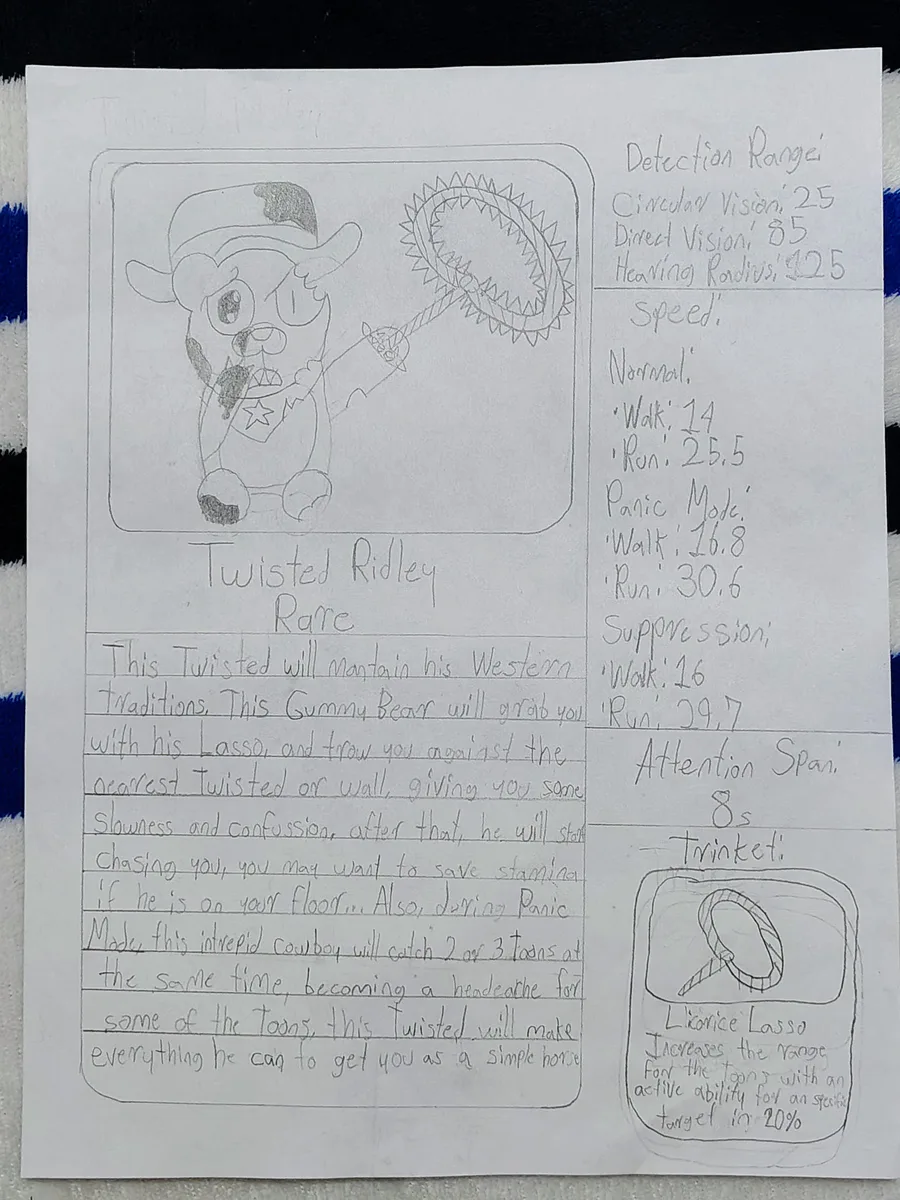 Twisted Ridley
Rare
This Twisted will mantain his Western
traditions. This Gummy Bear will grab you
with his Lasso, and trow you against the
nearest Twisted or wall, giving you some
Slowness and confussion, after that, he will start
chasing you, you may want to save stamina
if he is on your floor... Also, during Panic
Mode, this intrepid cowboy will catch 2 or 3 Toons at
the same time, becoming a headeache for
some of the Toons, this Twisted will make
everything he can to get you as a simple horse
Detection Range:
Circular Vision: 25
Direct Vision: 85
Hearing Radius: 125
Speed:
Normal:
·Walk: 14
·Run: 25.5
Panic Mode:
·Walk: 16.8
·Run: 30.6
Suppression:
·Walk: 16
·Run: 29.7
Attention Span:
8s
Trinket:
Licorice Lasso
Increases the range
For the Toons with an
active ability for an specific
target in 20%